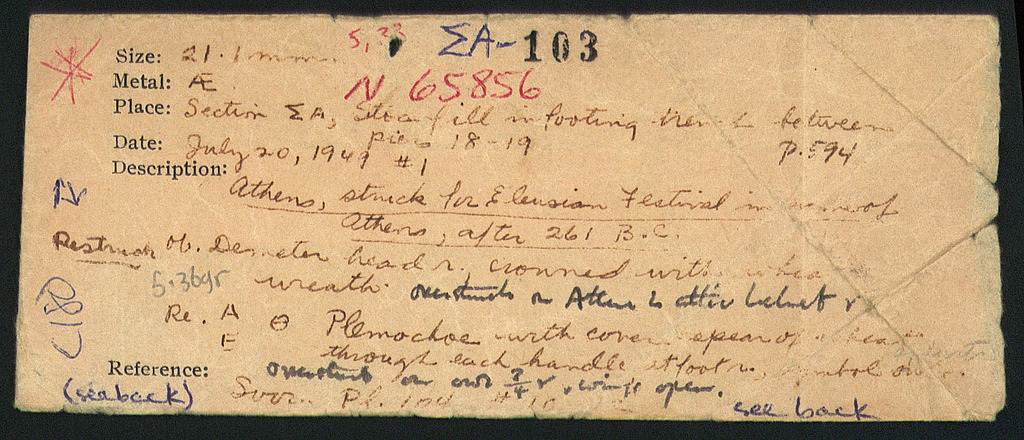 5,33 ΣA-103
Size: 21.1 mm.
N 65856
Metal: Æ
Place: Section ΣA, Stoa fill in footing trench between
piers 18-19
P. 594
Date: July 20, 1949 #1
Description:
Athens, struck for Eleusian Festival in name of
Athens, after 261 B.C.
Restruck Ob. Demeter head r., crowned with
wreath.
5.36gr
overstruck on Athena in attic helmet r
Re. A Θ Plemochoe with cover spear of
E through each handle at foot r., symbol
Reference: overstruck on owl 3/4 r, wings open.
(see back) Svor. Pl. 104 #
see back